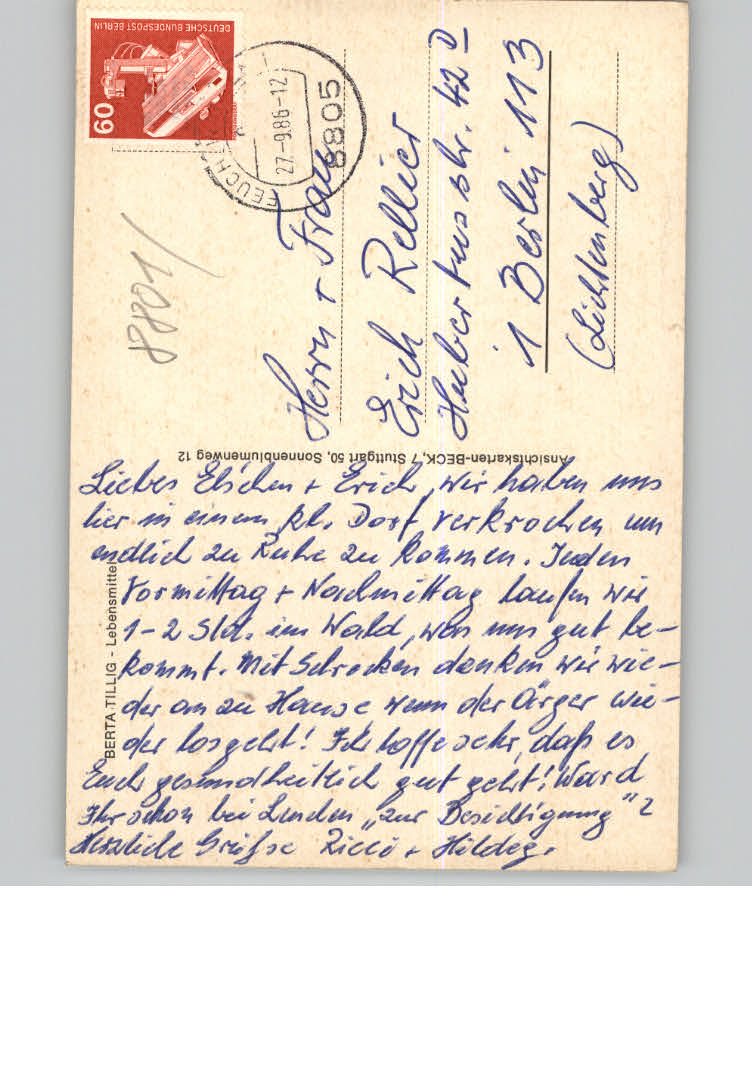 DEUTSCHE BUNDESPOST BERLIN
60
27.-9.86-12
8805
8801/
Herrn + Frau
Erich Rellier
Hubertusstr. 42 D
1 Berlin 113
(Lichtenberg)
Ansichtskarten-BECK, 7 Stuttgart 50, Sonnenblumenweg 12
BERTA TILLIG - Lebensmittel
Liebes Elschen + Erich, wir haben uns
hier in einem kl. Dorf verkrochen um
endlich zu Ruhe zu kommen. Jeden
Vormittag + Nachmittag laufen wir
1-2 Std. im Wald, was uns gut be-
kommt. Mit Schrecken denken wir wie-
der an zu Hause, wenn der Ärger wie-
der losgeht! Ich hoffe sehr, daß es
Euch gesundheitlich gut geht! Ward
Ihr schon bei Linden „zur Besichtigung"?
Herzliche Grüße Ricci + Hildeg.